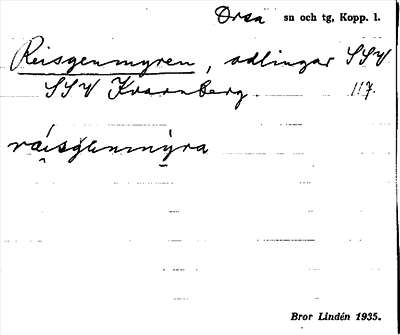 Orsa sn och tg, Kopp. l.
Reisgenmyren, odlingar SSV
SSV Kvarnberg. 117.
räisgenmyra
Bror Lindén 1935.